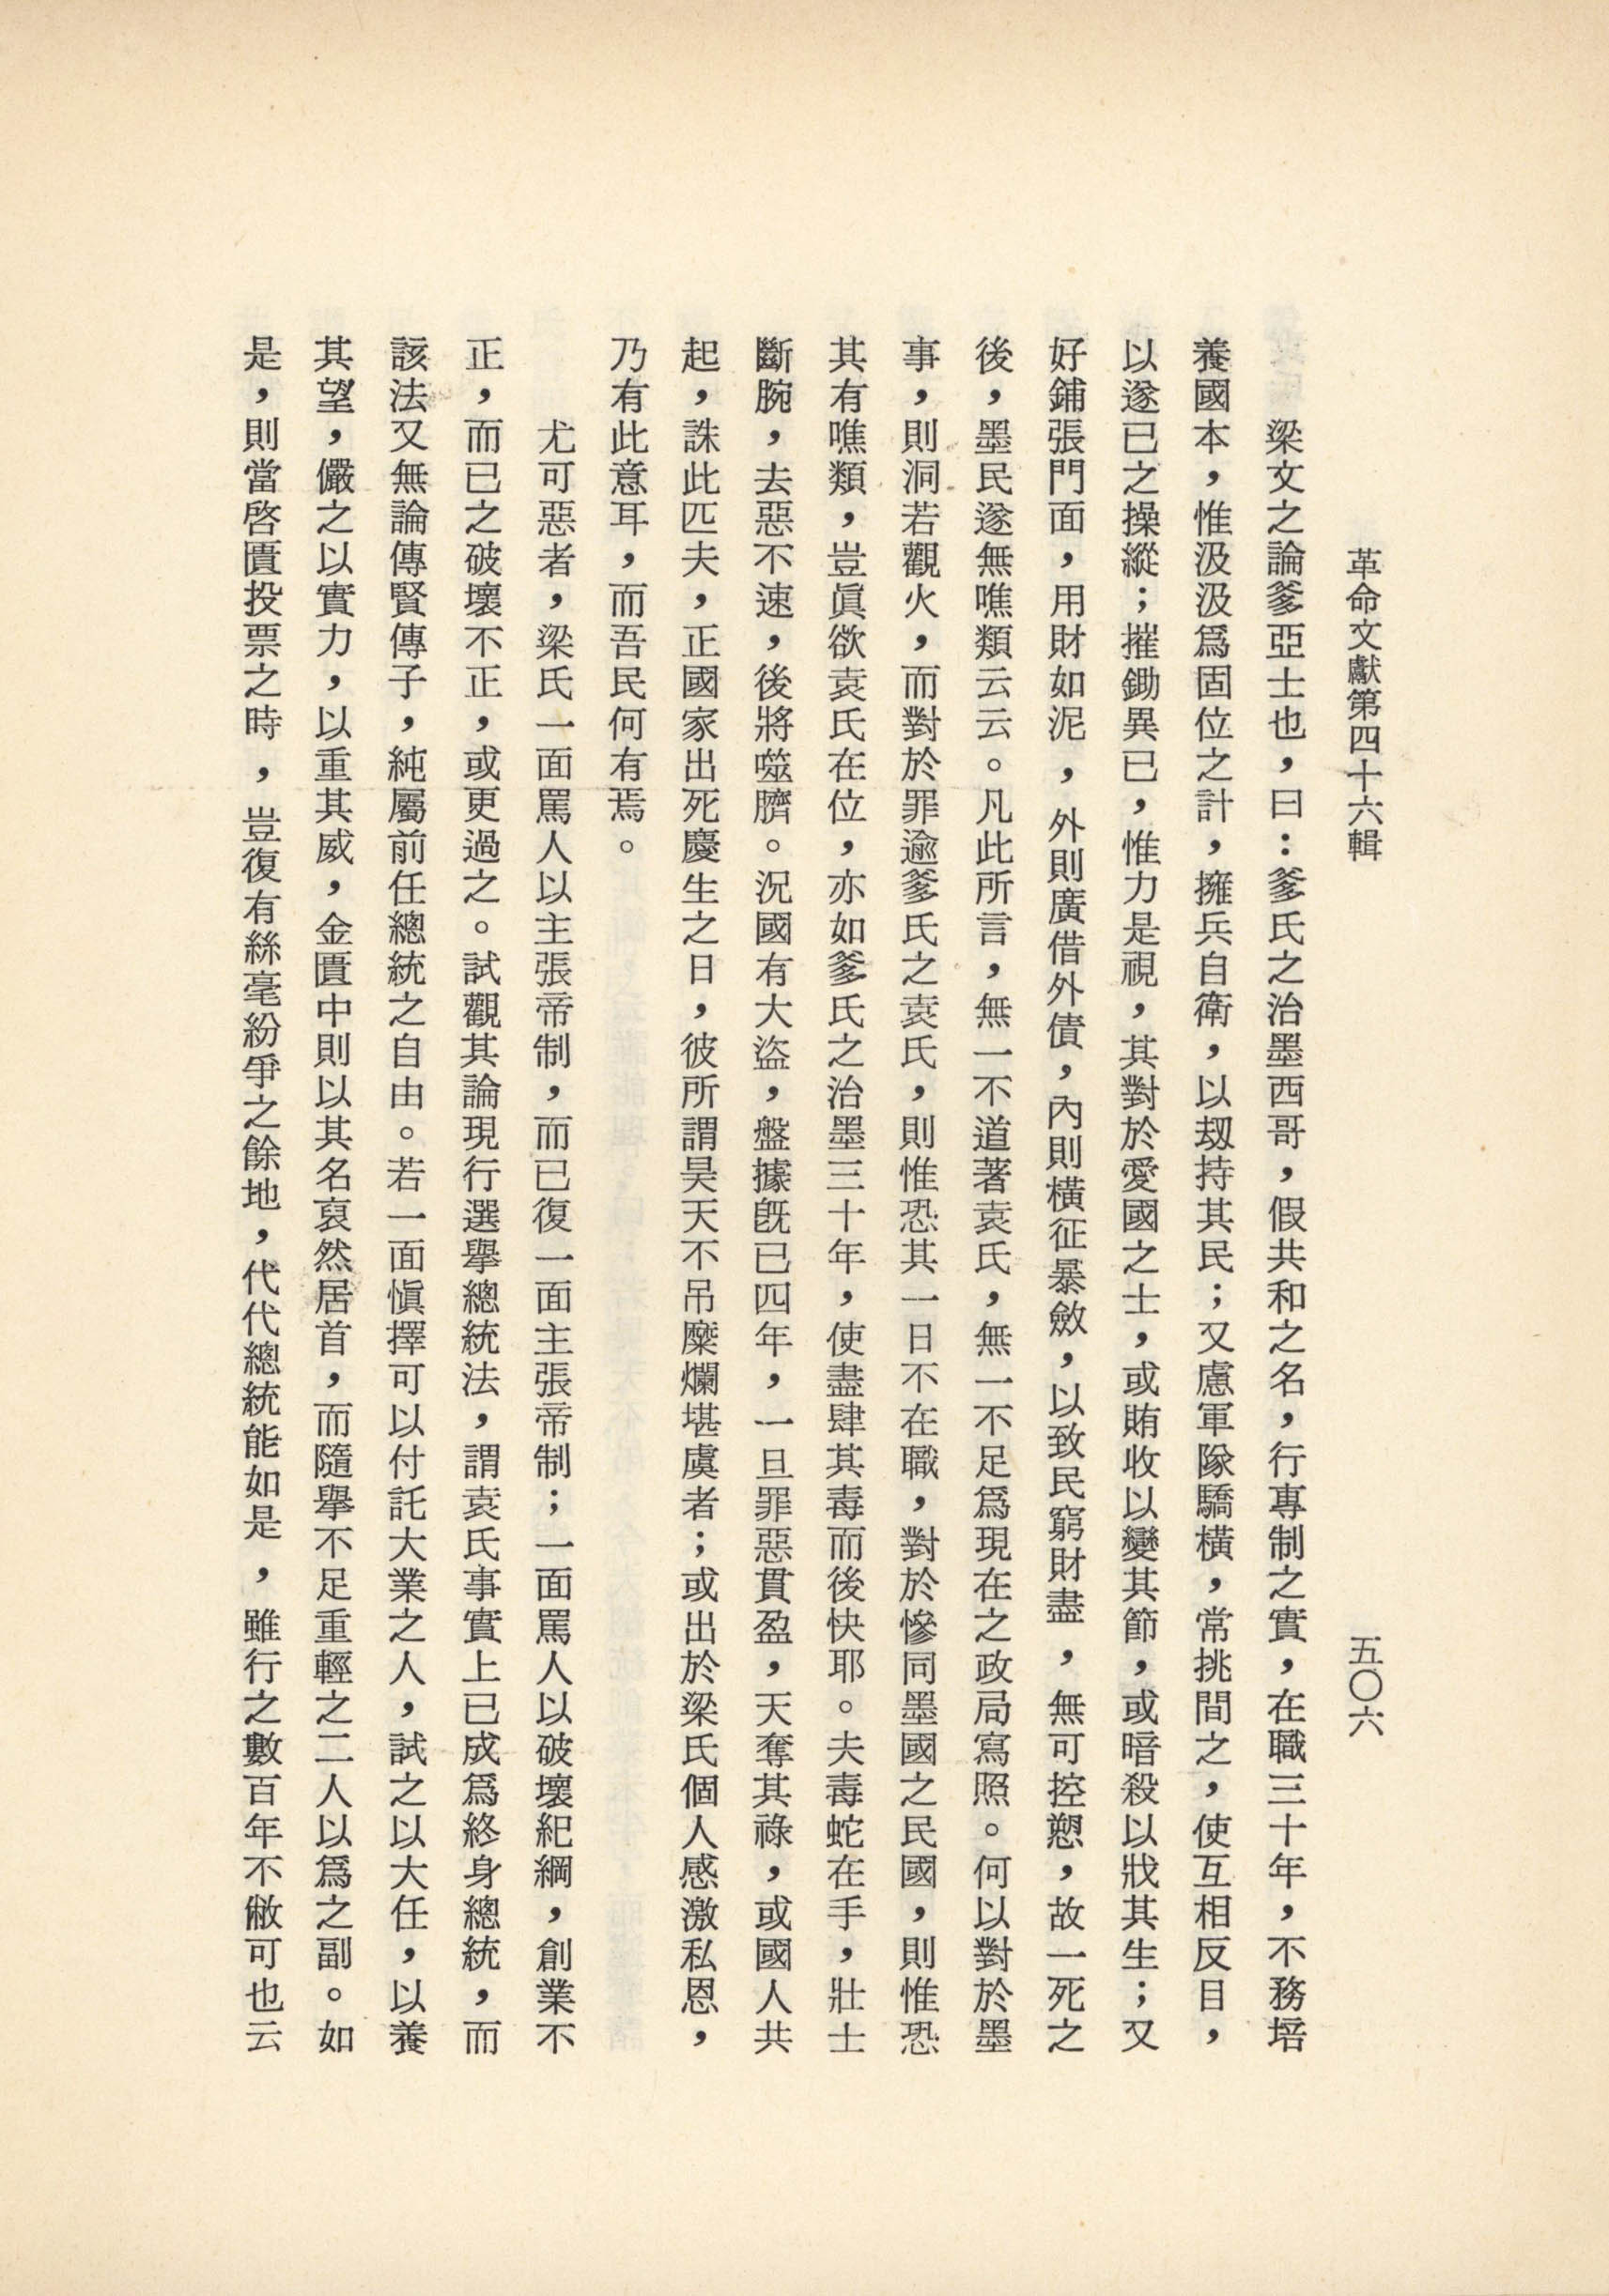 革命文獻第四十六輯
五〇六
梁文之論爹亞士也，曰：爹氏之治墨西哥，假共和之名，行專制之實，在職三十年，不務培
養國本，惟汲汲爲固位之計，擁兵自衛，以刼持其民；又慮軍隊驕橫，常挑間之，使互相反目，
以遂已之操縱；摧鋤異已，惟力是視，其對於愛國之士，或賄收以變其節，或暗殺以戕其生；又
好鋪張門面，用財如泥，外則廣借外債，內則橫征暴斂，以致民窮財盡，無可控愬，故一死之
後，墨民遂無噍類云云。凡此所言，無一不道著袁氏，無一不足爲現在之政局寫照。何以對於墨
事，則洞若觀火，而對於罪逾爹氏之袁氏，則惟恐其一日不在職，對於慘同墨國之民國，則惟恐
其有噍類，豈眞欲袁氏在位，亦如爹氏之治墨三十年，使盡肆其毒而後快耶。夫毒蛇在手，壯士
斷腕，去惡不速，後將噬臍。況國有大盜，盤據旣已四年，一旦罪惡貫盈，天奪其祿，或國人共
起，誅此匹夫，正國家出死慶生之日，彼所謂昊天不吊糜爛堪虞者；或出於梁氏個人感激私恩，
乃有此意耳，而吾民何有焉。
尤可惡者，梁氏一面罵人以主張帝制，而已復一面主張帝制；一面罵人以破壞紀綱，創業不
正，而已之破壞不正，或更過之。試觀其論現行選舉總統法，謂袁氏事實上已成爲終身總統，而
該法又無論傳賢傳子，純屬前任總統之自由。若一面愼擇可以付託大業之人，試之以大任，以養
其望，儼之以實力，以重其威，金匱中則以其名裒然居首，而隨舉不足重輕之二人以爲之副。如
是，則當啓匱投票之時，豈復有絲毫紛爭之餘地，代代總統能如是，雖行之數百年不敝可也云